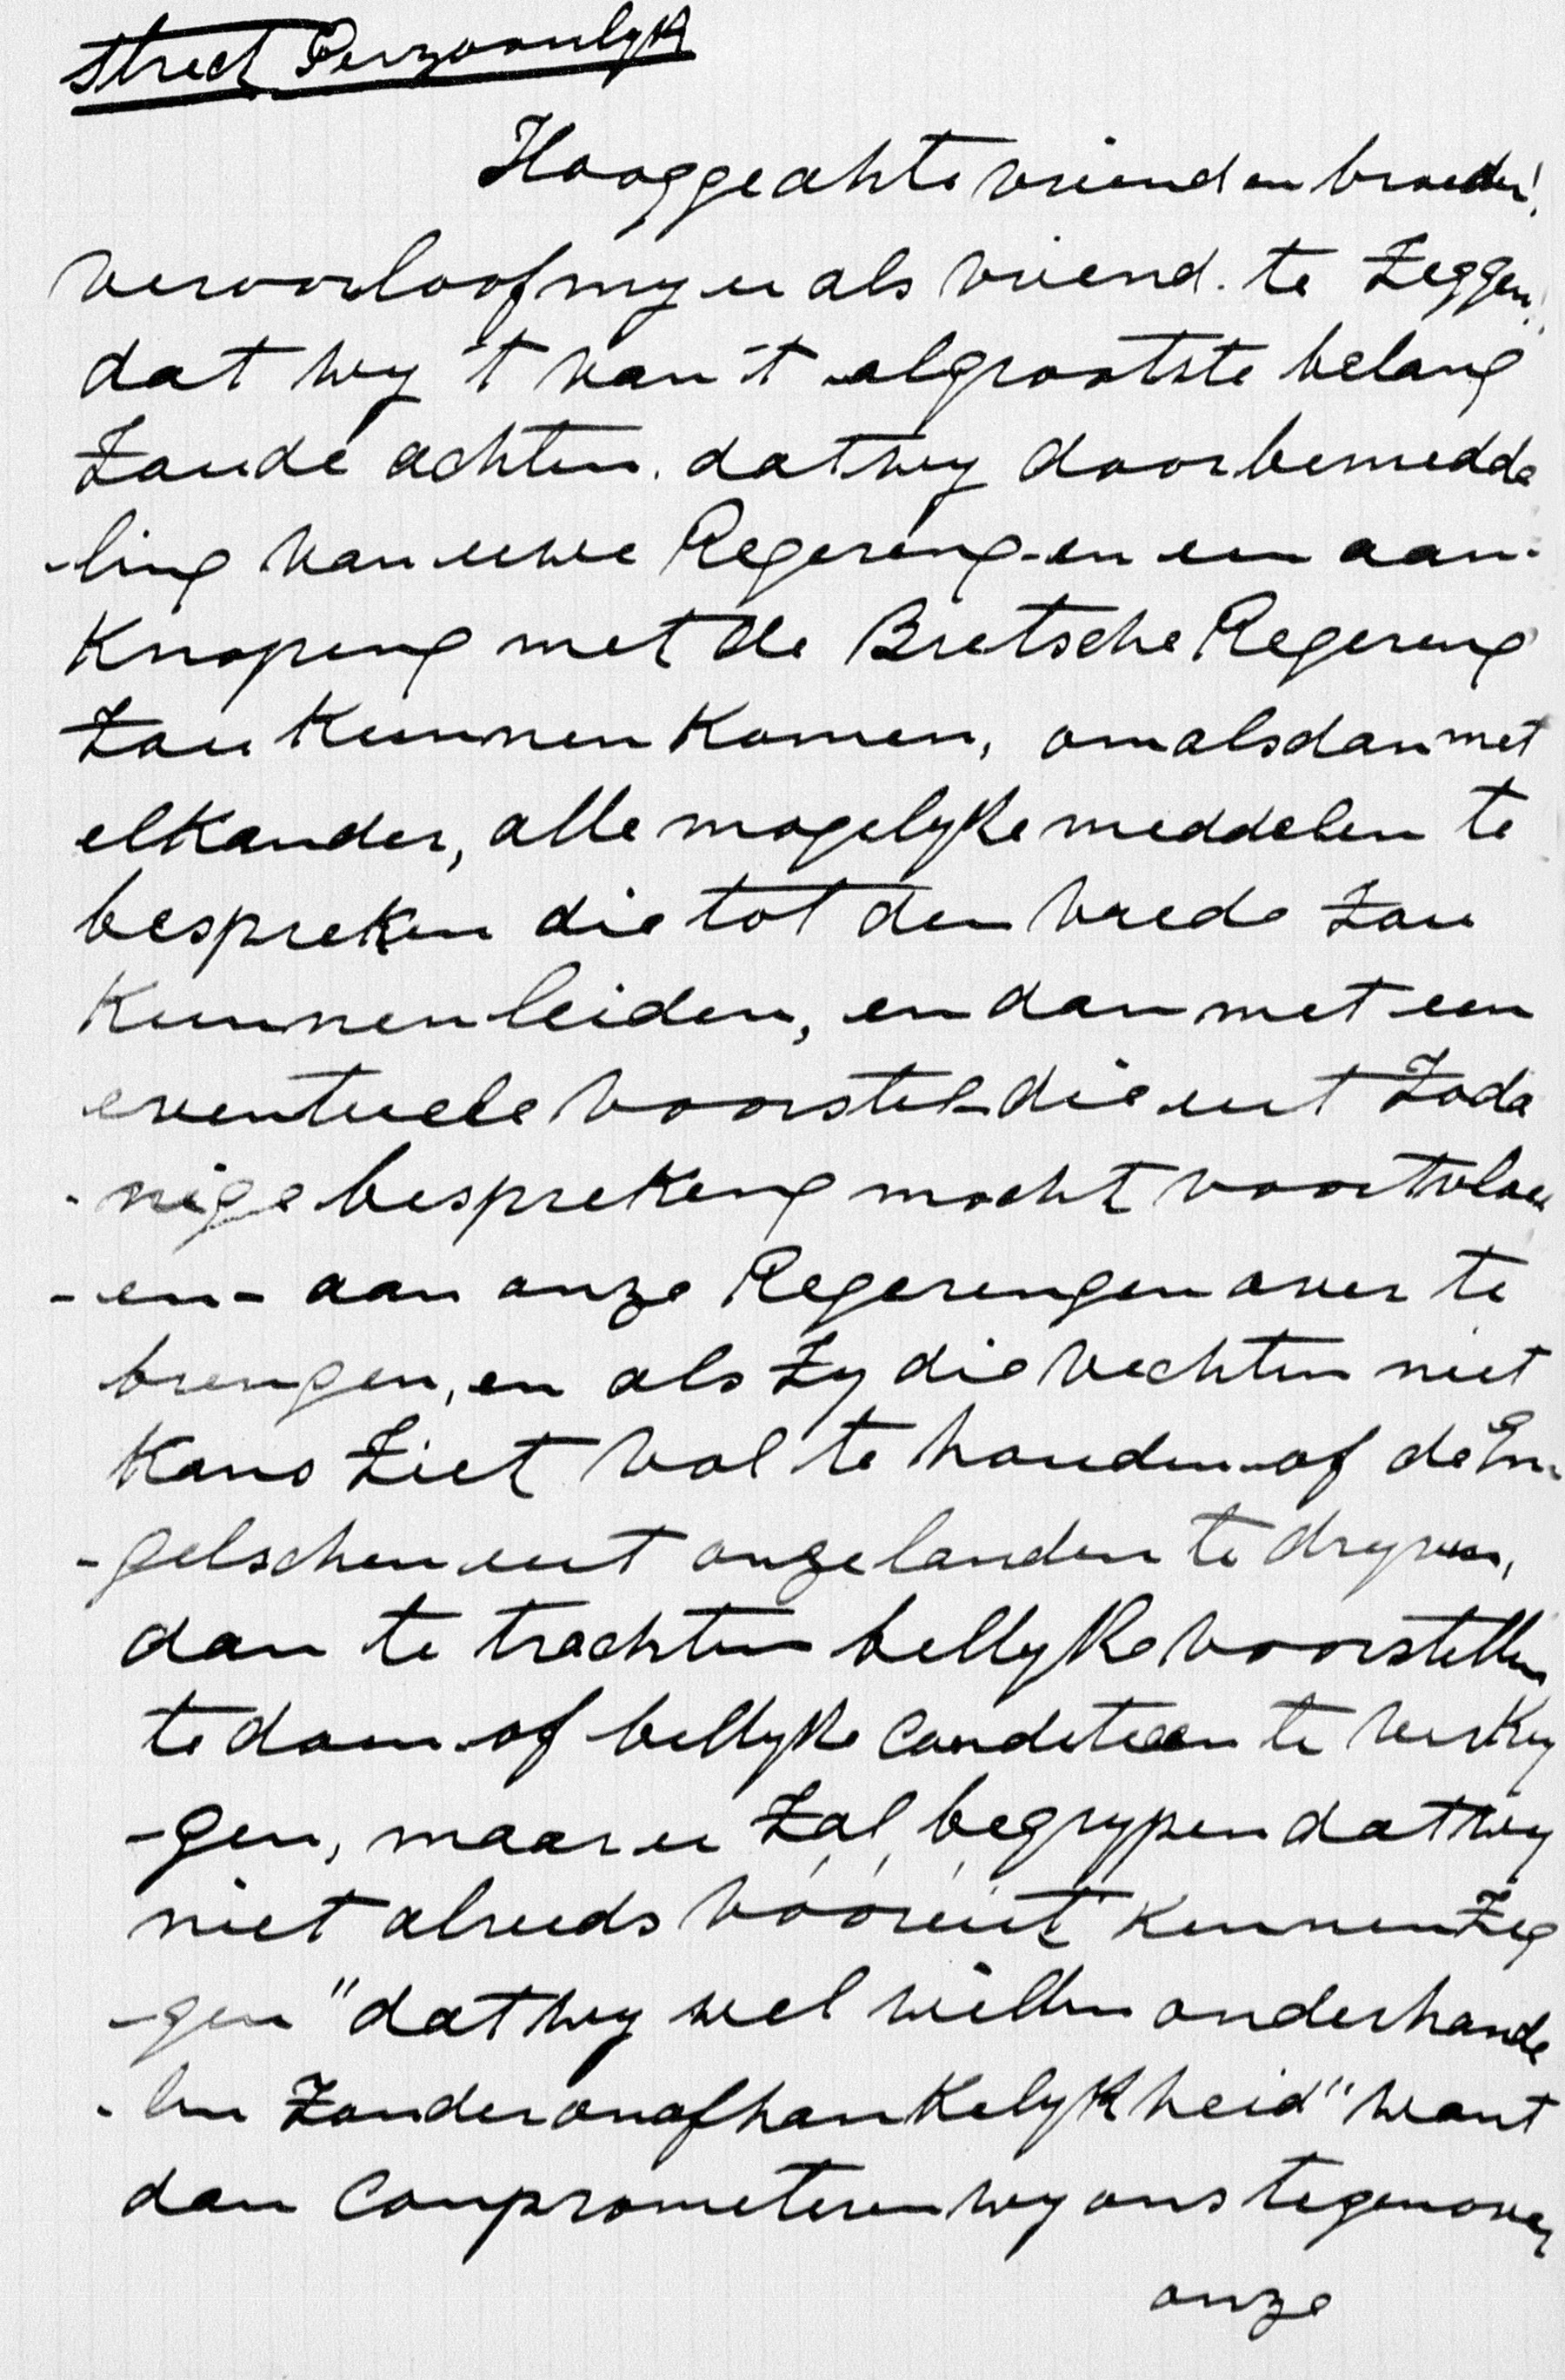 Strect Perzoonlyk
Hooggeahte vriend en broeder!
veroorloof my u als vriend. te zeggen,
dat wy 't van 't algrootste belang
zoude achten. dat wy door bemedde
-ling van uwe Regering - en een aan-
knoping met de Bretsche Regering
zou kunnen komen, om alsdan met
elkander, alle mogelyke meddelen te
bespreken die tot den vrede zou
kunnen leiden, en dan met een
eventuele voorstel - die uit zoda
-nige bespreking mocht voortvloei
-en- aan onze Regeringen over te
brengen, en als zy die vechten niet
kans ziet vol te houden - of de En
-gelschen uit onze landen te dryven,
dan te trachten bellyke voorstellen
te doen - of bellyke condeteen te verky
-gen, maar u zal begrypen dat wy
niet alreeds vóóruit kunnen zeg
-gen "dat wy wel willen onderhande
-len zonder onafhankelykheid" want
dan comprometeren wy ons tegenover
onze